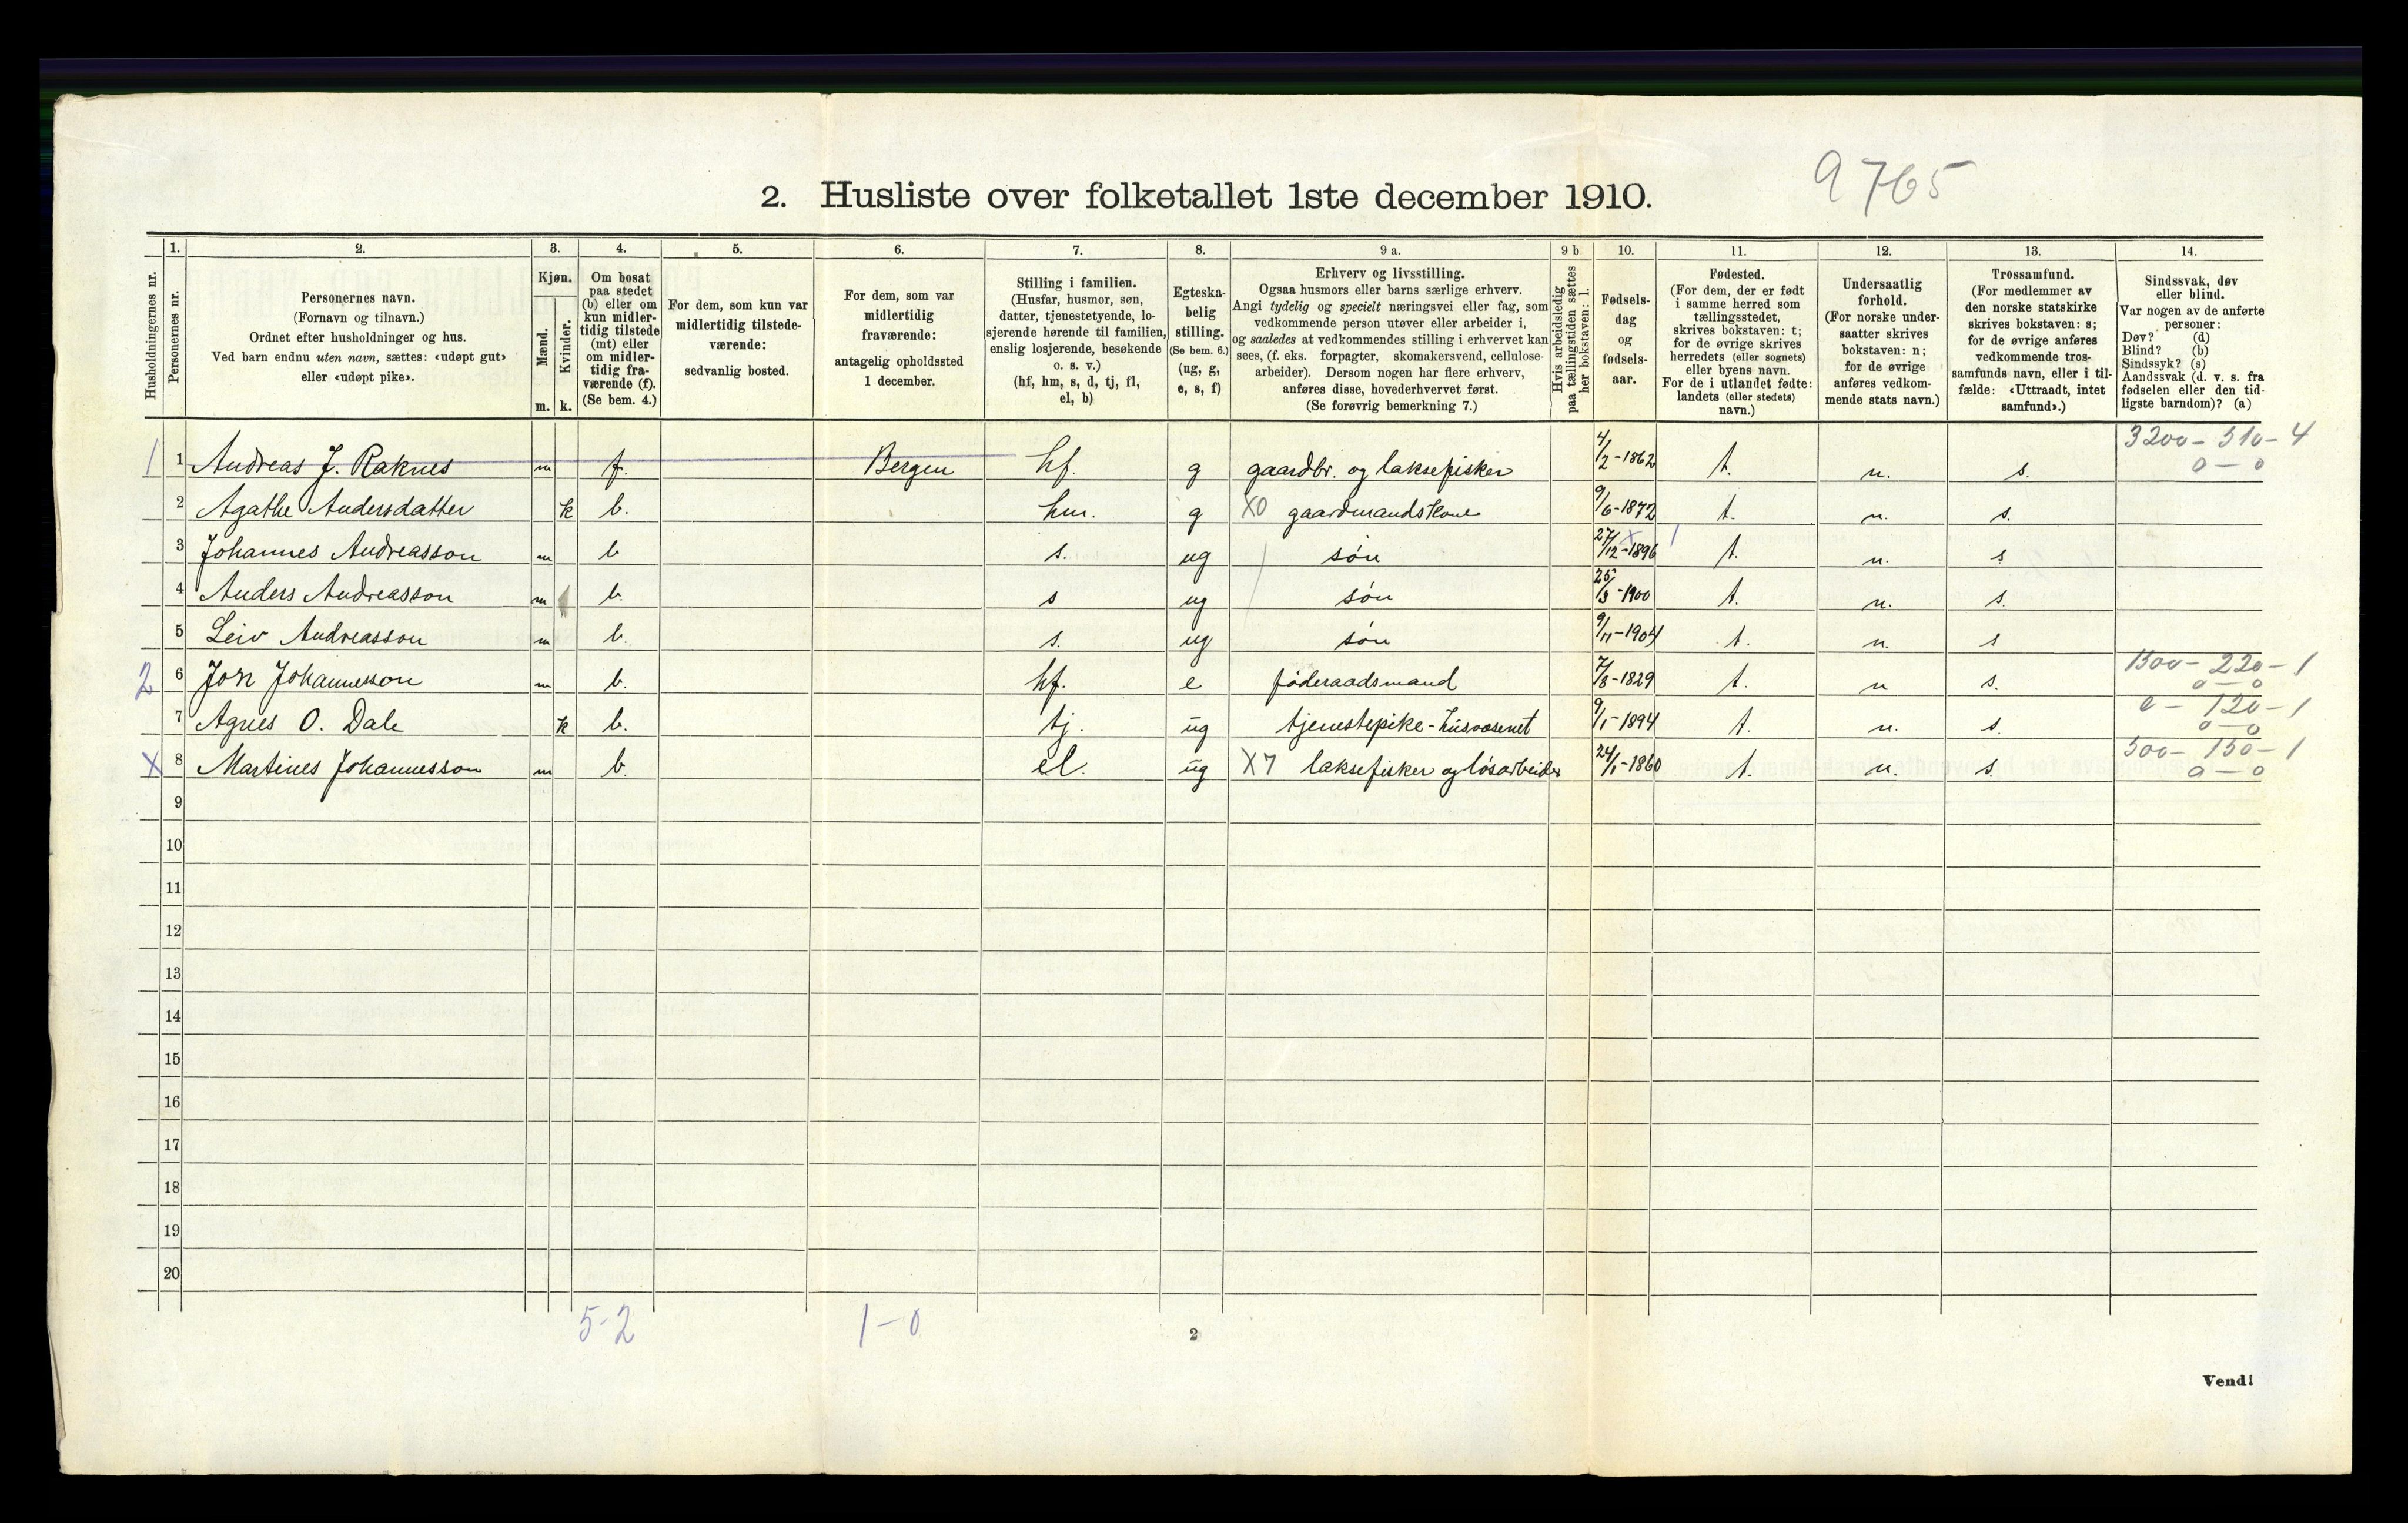 9765
2. Husliste over folketallet 1ste december 1910.
1. 2. 3. 4. 5. 6. 7. 8. 9 a. 9 b 10. 11. 12. 13. 14.
Husholdningernes nr.
Personernes nr.
Personernes navn.
(Fornavn og tilnavn.)
Ordnet efter husholdninger og hus.
Ved barn endnu uten navn, sættes: «udøpt gut»
eller «udøpt pike».
Kjøn.
Mænd.
Kvinder.
m. k.
Om bosat
paa stedet
(b) eller om
kun midler-
tidig tilstede
(mt) eller
om midler-
tidig fra-
værende (f).
(Se bem. 4.)
For dem, som kun var
midlertidig tilstede-
værende:
sedvanlig bosted.
For dem, som var
midlertidig
fraværende:
antagelig opholdssted
1 december.
Stilling i familien.
(Husfar, husmor, søn,
datter, tjenestetyende, lo-
sjerende hørende til familien,
enslig losjerende, besøkende
o. s. v.)
(hf, hm, s, d, tj, fl,
el, b)
Egteska-
belig
stilling.
(Se bem. 6.)
(ug, g,
e, s, f)
Erhverv og livsstilling.
Ogsaa husmors eller barns særlige erhverv.
Angi tydelig og specielt næringsvei eller fag, som
vedkommende person utøver eller arbeider i,
og saaledes at vedkommendes stilling i erhvervet kan
sees, (f. eks. forpagter, skomakersvend, cellulose-
arbeider). Dersom nogen har flere erhverv,
anføres disse, hovederhvervet først.
(Se forøvrig bemerkning 7.)
Hvis arbeidsledig
paa tællingstiden sættes
her bokstaven: l.
Fødsels-
dag
og
fødsels-
aar.
Fødested.
(For dem, der er født
i samme herred som
tællingsstedet,
skrives bokstaven: t;
for de øvrige skrives
herredets (eller sognets)
eller byens navn.
For de i utlandet fødte:
landets (eller stedets)
navn.)
Undersaatlig
forhold.
(For norske under-
saatter skrives
bokstaven: n;
for de øvrige
anføres vedkom-
mende stats navn.)
Trossamfund.
(For medlemmer av
den norske statskirke
skrives bokstaven: s;
for de øvrige anføres
vedkommende tros-
samfunds navn, eller i til-
fælde: «Uttraadt, intet
samfund».)
Sindssvak, døv
eller blind.
Var nogen av de anførte
personer:
Døv? (d)
Blind? (b)
Sindssyk? (s)
Aandssvak (d. v. s. fra
fødselen eller den tid-
ligste barndom)? (a)
1 1 Andreas J. Raknes m f. Bergen hf. g gaardbr. og laksefisker 4/2-1862 t. n. s. 3200-510-4 0-0
2 Agathe Andersdatter k b. hm. g X0 gaardmandskone 9/6-1872 t. n. s.
3 Johannes Andreasson m b s. ug søn 27/12-1896 x 1 t. n. s
4 Anders Andreasson m b. s ug søn 25/3-1900 t. n. s.
5 Leiv Andreasson m b. s. ug søn 9/11-1904 t. n. s
2 6 Jon Johannesson m b. hf. e føderaadsmand 7/8-1829 t. n s. 1500-220-1 0-0
7 Agnes O. Dale k b. tj. ug tjenestepike-husvæsenet 9/1-1894 t. n. s. 0-120-1 0-0
X 8 Martines Johannesson m b. el. ug X7 laksefisker og løsarbeider 24/1-1860 t. n. s. 500-150-1 0-0
9
10
11
12
13
14
15
16
17
18
19
20
5-2 1-0
2
Vend!